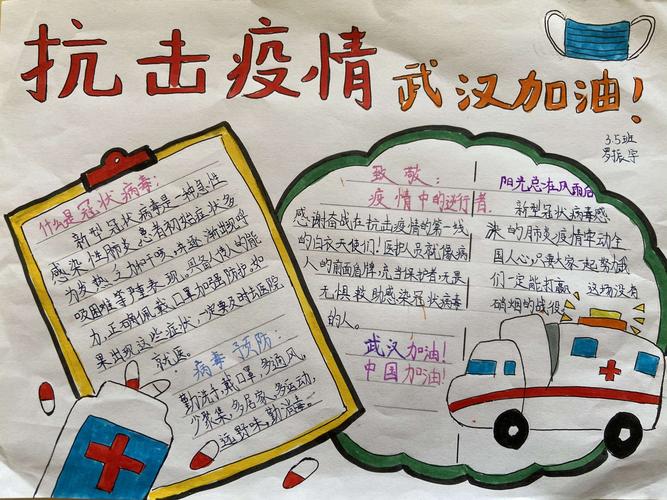 抗击疫情 武汉加油!
3.5班
罗振宇
什么是冠状病毒:
新型冠状病毒是一种急性
感染性肺炎,患者初始症状多
为发热、乏力和干咳,
吸困难等严重表现,具备人传人的能
力,正确佩戴口罩加强防护,如
果出现这些症状,一定要及时去医院
就医。
病毒预防:
勤洗手,戴口罩,多通风,
少聚集,多居家,多运动,
远野味,勤消毒。
致敬:
疫情中的逆行者.
感谢奋战在抗击疫情的第一线
的白衣天使们!医护人员就像病
人的前面盾牌,充当保护者,无畏
无惧救助感染冠状病毒
的人。
武汉加油!
中国加油!
阳光总在风雨后
新型冠状病毒感
染的肺炎疫情牵动全
国人心,只要大家一起努力,我
们一定能打赢 这场没有
硝烟的战役